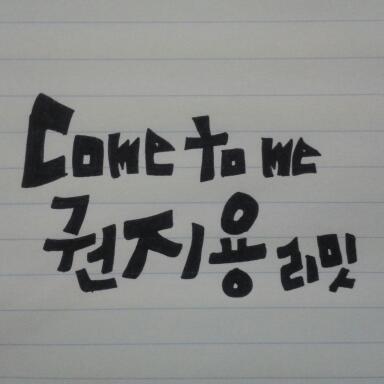 Come to me
권지용 리밋